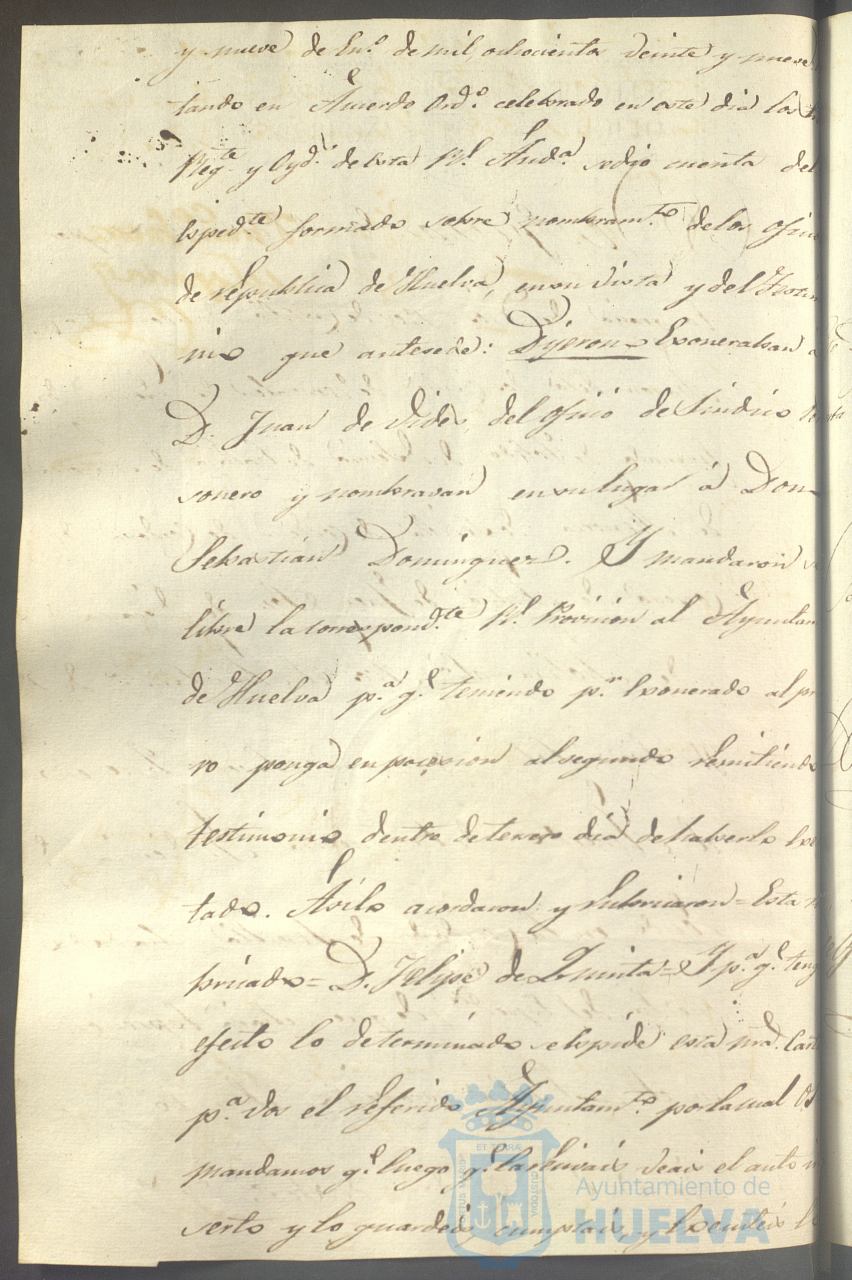 y nueve de En.º de mil ochocientos veinte y nueve
tando en Acuerdo Ord.º celebrado en este dia los
Reg.te y Oyd.s de esta R.l Aud.a se dio cuenta del
Esped.te formado sobre nombram.to de los ofici
de republica de Huelva, en su vista y del Testim
nio que antesede: Dijeron Exoneraban a
D. Juan de Vides, del oficio de Sindico
sonero y nombravan en su lugar á Don
Sebastian Dominguez. Y mandaron
libre la correspond.te R.l Provicion al Ayuntam
de Huelva p.a q.e teniendo p.r Exonerado al pri
ro ponga en poçesion al segundo remitiendo
testimonio dentro de tersero dia de haverlo Exe
tado. Asi lo acordaron y rubricaron = Esta
bricado = D. Felipe de Quinta = Y p.a q.e teng
efecto lo determinado se espide esta nra. Cart
p.a vos el referido Ayuntam.to por la cual Os
mandamos q.e luego q.e la reivais veais el auto in
serto y lo guardeis, cumplais, y Executeis
ET TERRÆ
CUSTODIA
Ayuntamiento de
HUELVA